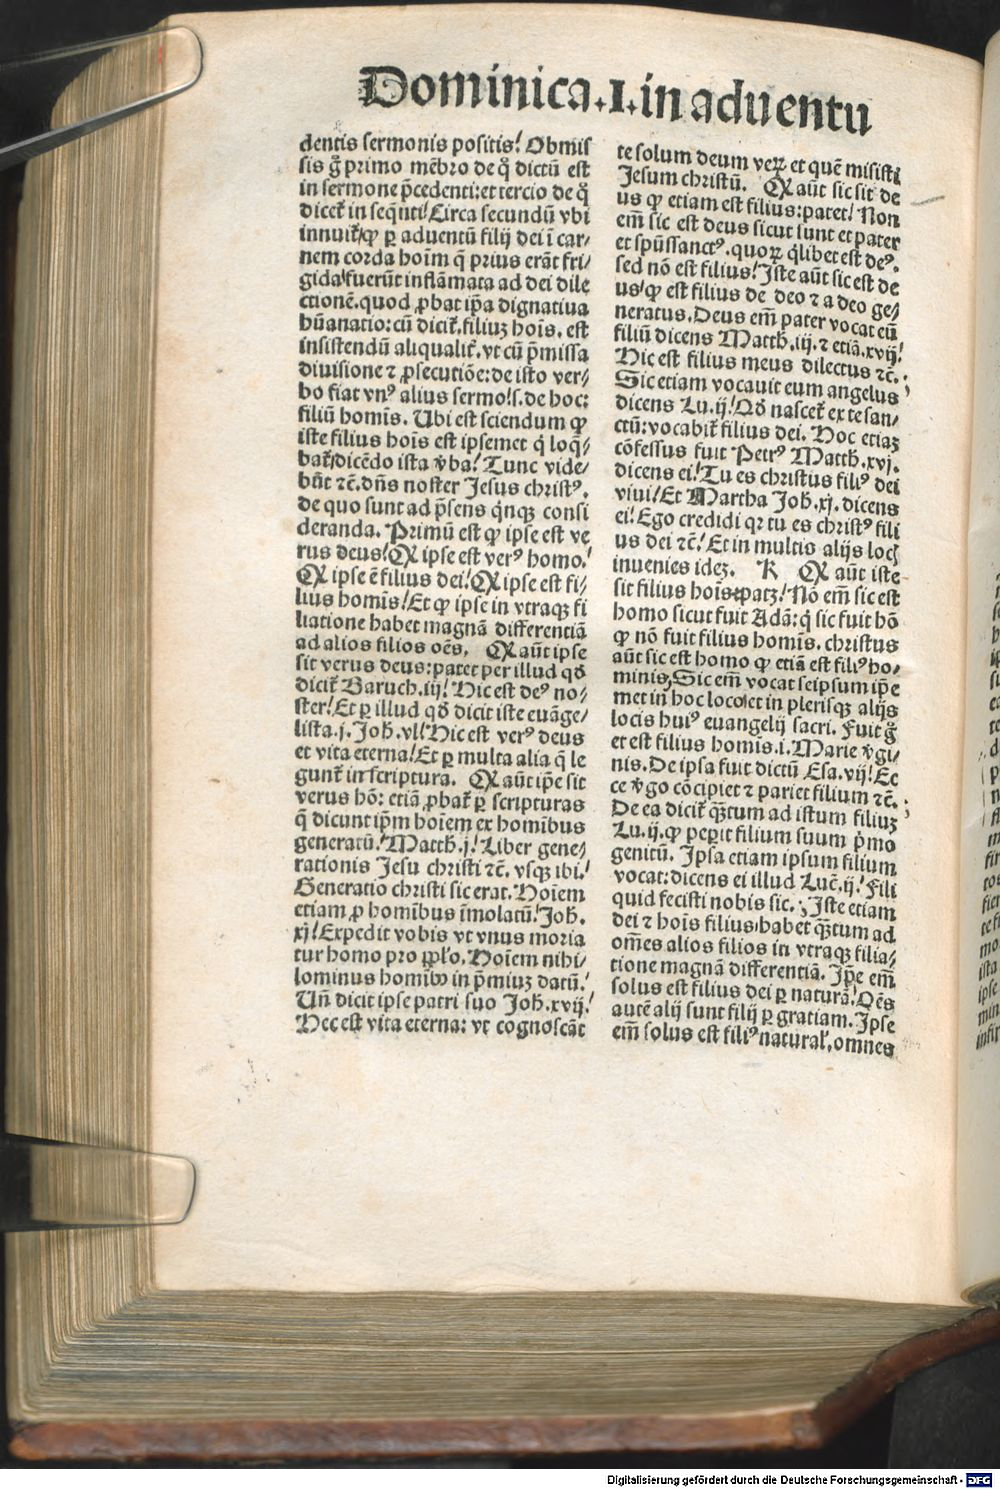 Dominica.I.in aduentu
dentis sermonis positis! Obmis
sis g̃ primo mẽbro de q̃ dictũ est
in sermone p̃cedenti: et tercio de q̃
dicet̃ in seq̃nti! Circa secundũ vbi
innuit̃/ ꝙ ꝑ aduentũ filij dei ĩ car/
nem corda hoĩm q̃ prius erãt fri/
gida/ fuerũt inflãmata ad dei dile
ctionẽ. quod ꝓbat ip̃a dignatiua
hũanatio: cũ dicit̃. filiuʒ hoĩs. est
insistendũ aliqualit̃. vt cũ p̃missa
diuisione ⁊ ꝓsecutiõe: de isto ver/
bo fiat vnꝰ alius sermo! s. de hoc:
filiũ homĩs. Ubi est sciendum ꝙ
iste filius hoĩs est ipsemet q̇ loq̃/
bat̃/ dicẽdo ista v̾ba! Tunc vide/
bũt ⁊c̃. dñs noster Jesus christꝰ.
de quo sunt ad p̃sens q̇nqꝫ consi
deranda. Primũ est ꝙ ipse est ve
rus deus! Qꝙ ipse est verꝰ homo!
Qꝙ ipse ẽ filius dei! Qꝙ ipse est fi/
lius homĩs! Et ꝙ ipse in vtraqꝫ fi
liatione habet magnã differentiã
ad alios filios oẽs. Qꝙ aũt ipse
sit verus deus: patet per illud qđ
dicit̃ Baruch. iij! Hic est deꝰ no/
ster! Et ꝑ illud qđ dicit iste euãge/
lista. j. Joh̃. vl! Hic est verꝰ deus
et vita eterna! Et ꝑ multa alia q̃ le
gunt̃ in scriptura. Qꝙ aũt ip̃e sit
verus hõ: etiã ꝓbat̃ ꝑ scripturas
q̃ dicunt ip̃m hoĩem ex homĩbus
generatũ! Matth̃. j! Liber gene/
rationis Jesu christi ⁊c̃. vsqꝫ ibi!
Generatio christi sic erat. Hoĩem
etiam ꝓ homĩbus ĩmolatũ! Joh̃.
xj! Expedit vobis vt vnus moria
tur homo pro pp̃lo. Hoĩem nihi/
lominus homĩbꝰ in p̃miuʒ datũ!
Uñ dicit ipse patri suo Joh̃. xvij!
Hec est vita eterna: vt cognoscãt
te solum deum verꝝ et quẽ misisti
Jesum christũ. Qꝙ aũt sic sit de
us ꝙ etiam est filius: patet! Non
em̃ sic est deus sicut sunt et pater
et sp̃ũssanctꝰ. quoꝝ q̇libet est deꝰ.
sed nõ est filius! Iste aũt sic est de
us/ ꝙ est filius de deo ⁊ a deo ge/
neratus. Deus em̃ pater vocat eũ
filiũ dicens Matth̃. iij. ⁊ etiã. xvij!
Hic est filius meus dilectus ⁊c̃.
Sic etiam vocauit eum angelus
dicens Lu. ij! Qđ nascet̃ ex te san/
ctũ: vocabit̃ filius dei. Hoc etiaʒ
cõfessus fuit Petrꝰ Matth̃. xvj.
dicens ei! Tu es christus filiꝰ dei
viui! Et Martha Joh̃. xj. dicens
ei! Ego credidi qꝛ tu es christꝰ fili
us dei ⁊c̃! Et in multis alijs locꝭ
inuenies ideʒ. K Qꝙ aũt iste
sit filius hoĩs: patʒ! Nõ em̃ sic est
homo sicut fuit Adã: q̇ sic fuit hõ
ꝙ nõ fuit filius homĩs. christus
aũt sic est homo ꝙ etiã est filiꝰ ho/
minis. Sic em̃ vocat seipsum ip̃e
met in hoc loco/ et in plerisqꝫ alijs
locis huiꝰ euangelij sacri. Fuit g̃
et est filius homĩs. i. Marie v̾gi/
nis. De ipsa fuit dictũ Esa. vij! Ec
ce v̾go cõcipiet ⁊ pariet filium ⁊c̃.
De ea dicit̃ q̃ꝫtum ad istum filiuʒ
Lu. ij. ꝙ peꝑit filium suum p̃mo
genitũ. Ipsa etiam ipsum filium
vocat: dicens ei illud Luc̃. ij! Fili
quid fecisti nobis sic. Iste etiam
dei ⁊ hoĩs filius/ habet q̃ꝫtum ad
om̃es alios filios in vtraqꝫ filia/
tione magnã differentiã. Ip̃e em̃
solus est filius dei ꝑ naturã! Oẽs
autẽ alij sunt filij ꝑ gratiam. Ipse
em̃ solus est filiꝰ natural̃, omnes
Digitalisierung gefördert durch die Deutsche Forschungsgemeinschaft - DFG